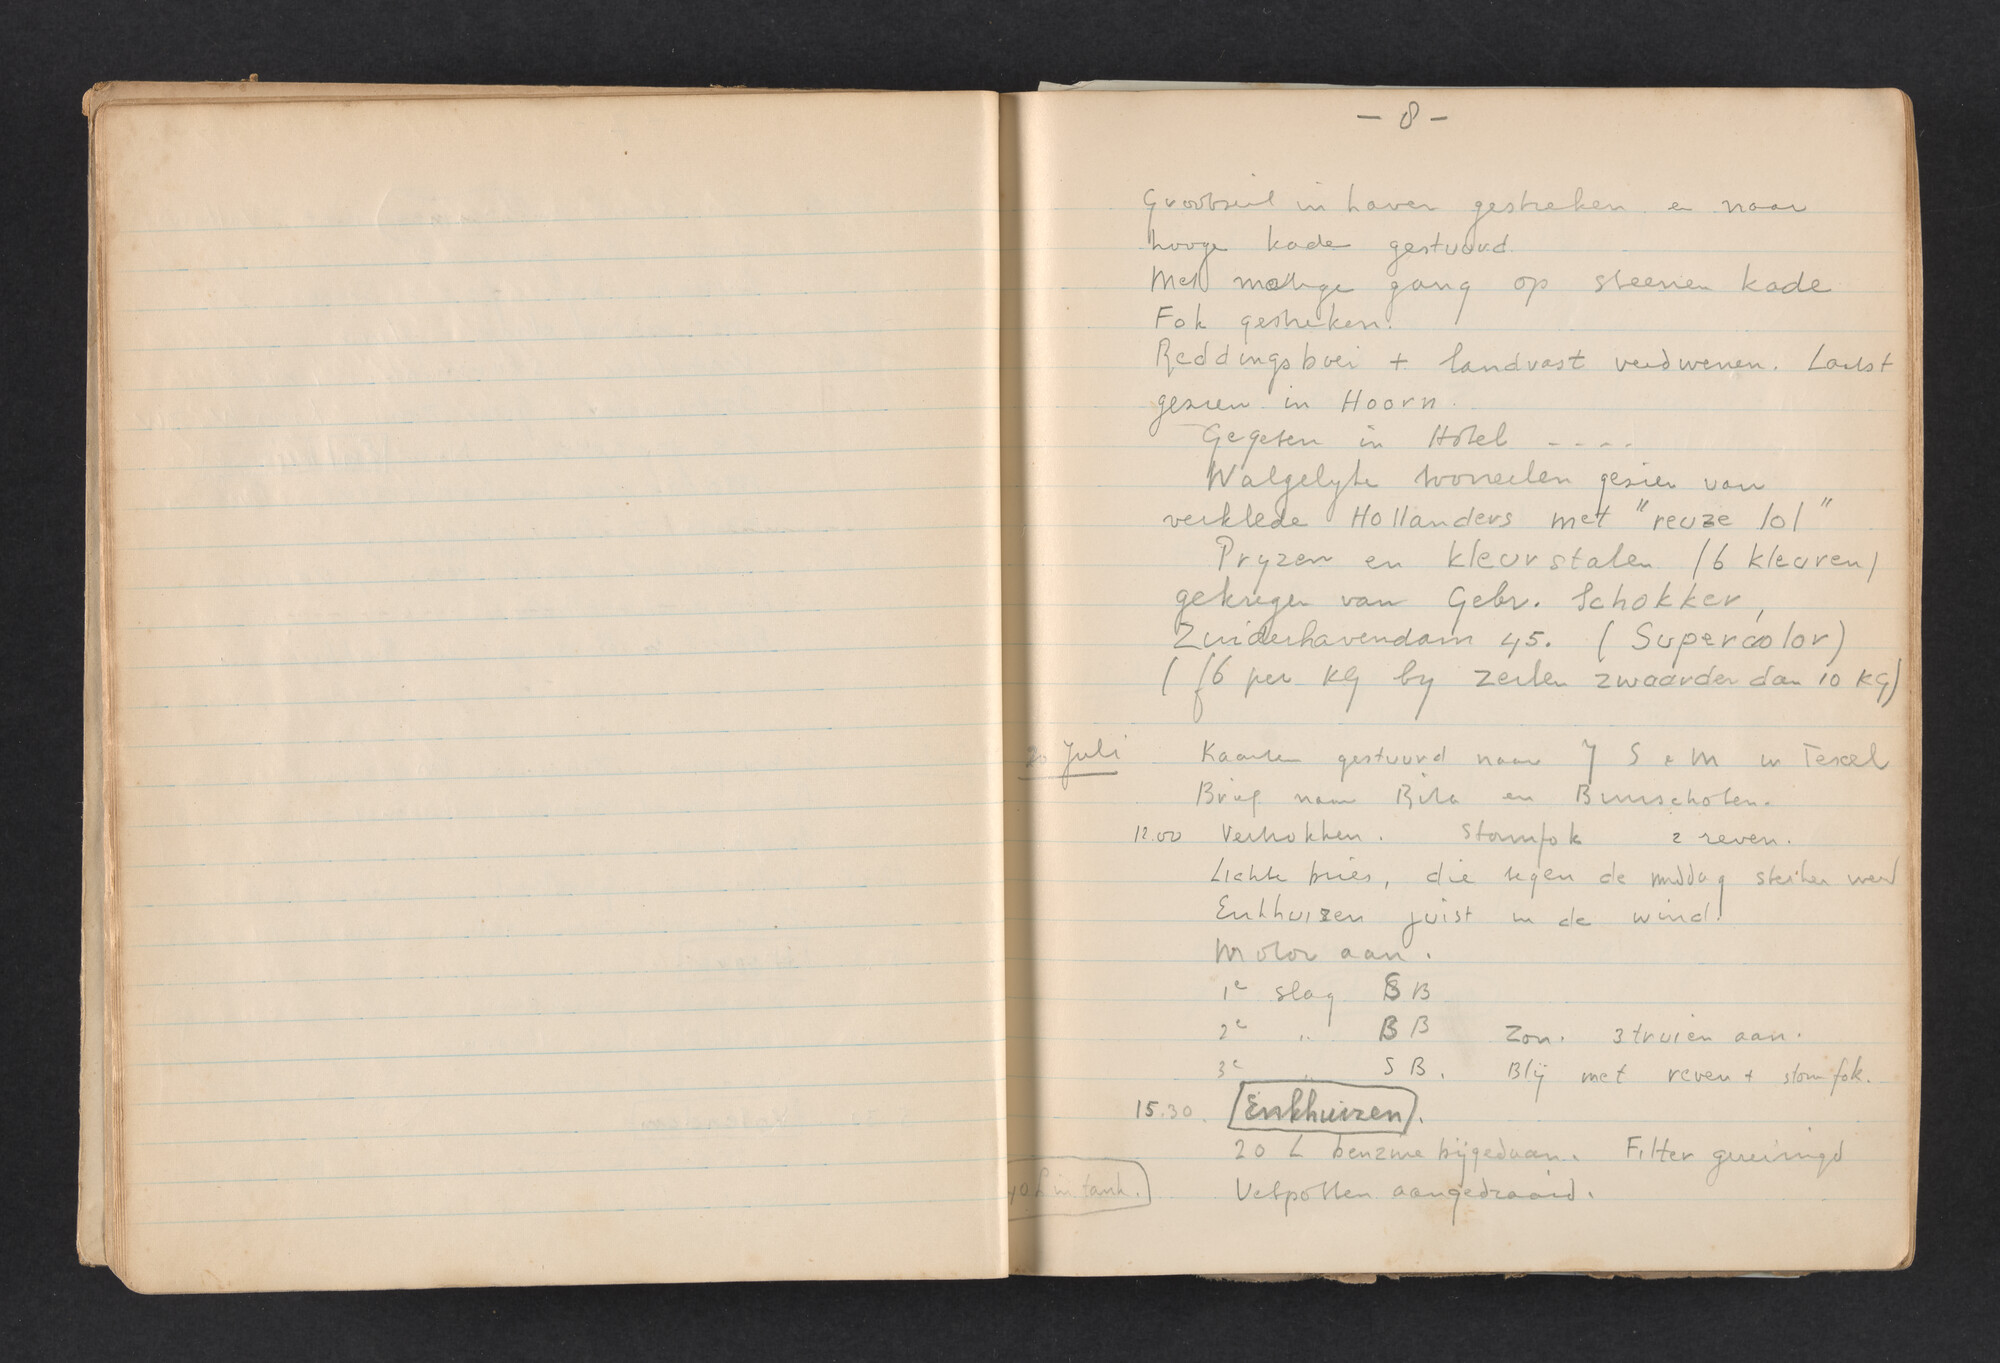 - 8 -
Grootzeil in haven gestreken en naar
hooge kade gestuurd.
Met matige gang op steenen kade
Fok gestreken.
Reddingsboei + landvast verdwenen. Laatst
gezien in Hoorn.
Gegeten in Hotel ----
Walgelyke tooneelen gezien van
verklede Hollanders met "reuze lol"
Pryzen en kleurstalen (6 kleuren)
gekregen van Gebr. Schokker,
Zuiderhavendam 45. (Supercolor)
(f6 per KG by zeilen zwaarder dan 10 KG)
20 Juli Kaarten gestuurd naar J S + M in Texel
Brief naar Rita en Bunschoten.
12.00 Vertrokken. Stormfok 2 reven.
Lichte bries, die tegen de middag sterker werd
Enkhuizen juist in de wind.
Motor aan.
1e slag SB
2e " BB Zon. 3 truien aan.
3e " SB. Blij met reven + stormfok.
15.30. Enkhuizen.
20 L benzine bijgedaan. Filter gereinigd
40 L in tank. Vetpotten aangedraaid.